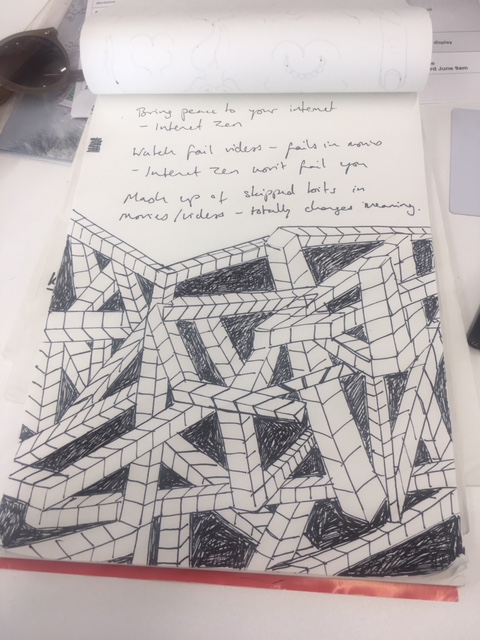 display
rd June 9am
Bring peace to your internet
- Internet Zen
Watch fail videos - fails in movies
- Internet Zen won't fail you
Mash up of skipped bits in
movies/videos - totally changes meaning.